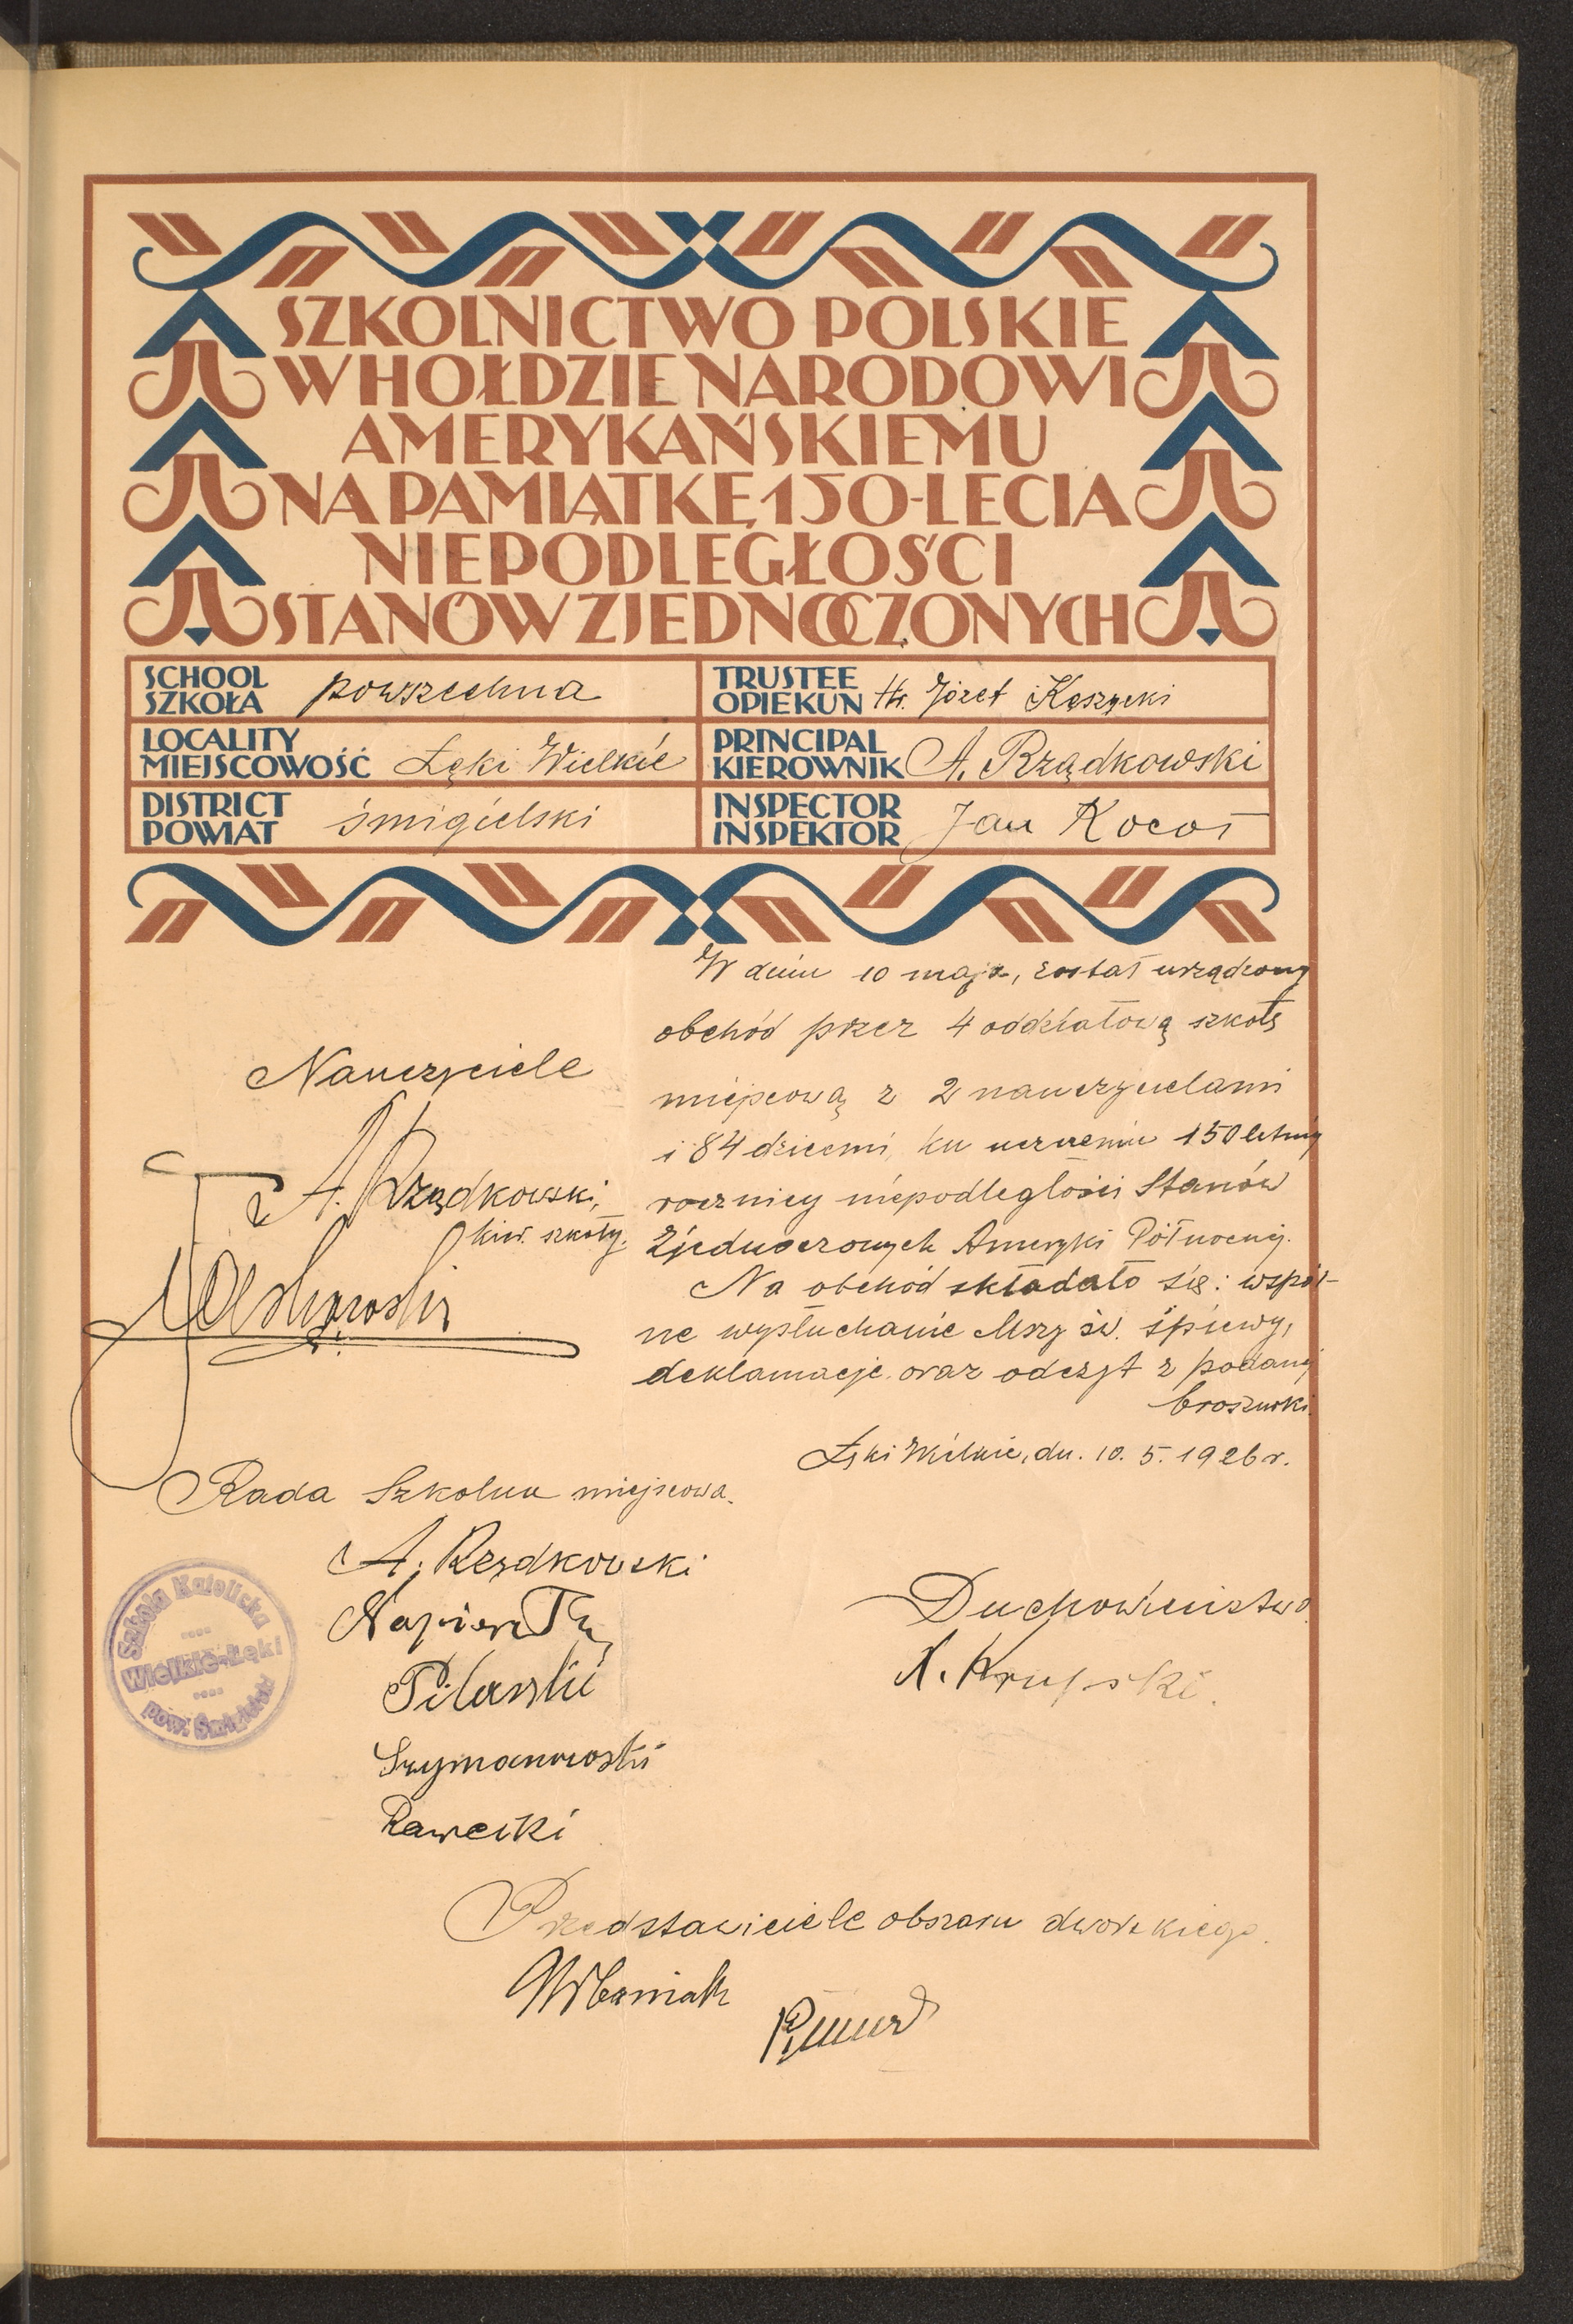 SZKOLNICTWO POLSKIE
W HOŁDZIE NARODOWI
AMERYKAŃSKIEMU
NA PAMIĄTKĘ 150-LECIA
NIEPODLEGŁOŚCI
STANÓW ZJEDNOCZONYCH
SCHOOL
SZKOŁA powszechna
TRUSTEE
OPIEKUN Hr. Józef Kęszycki
LOCALITY
MIEJSCOWOŚĆ Łęki Wielkie
PRINCIPAL
KIEROWNIK A. Rządkowski
DISTRICT
POWIAT śmigielski
INSPECTOR
INSPEKTOR Jan Kocoń
W dniu 10 maja, został urządzony
obchód przez 4 oddziałową szkołę
miejscową z 2 nauczycielami
i 84 dziećmi, ku uczczeniu 150 letniej
rocznicy niepodległości Stanów
Zjednoczonych Ameryki Północnej.
Na obchód składało się: wspól-
ne wysłuchanie Mszy św. śpiewy,
deklamacje oraz odczyt z podanej
broszurki.
Łęki Wielkie, dn. 10. 5. 1926 r.
Nauczyciele
A. Rządkowski,
kier. szkoły.
Rada Szkolna miejscowa.
A. Rządkowski
Napierała
Pilarski
Szymanowski
Rawecki
Szkoła Katolicka
Wielkie-Łęki
pow. Śmigielski
Duchowieństwo
X. Krupski.
Przedstawiciele obszaru dworskiego.